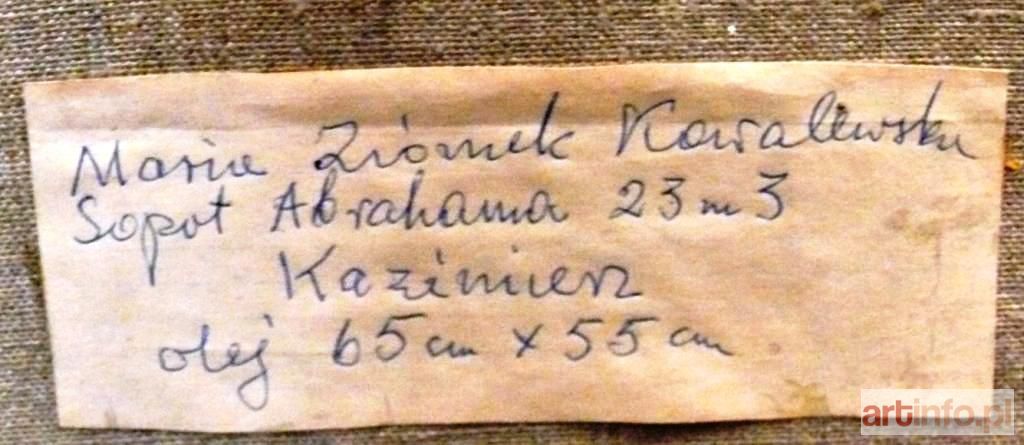 Maria Ziómek Kowalewska
Sopot Abrahama 23 m 3
Kazimierz
olej 65 cm x 55 cm
artinfo.pl